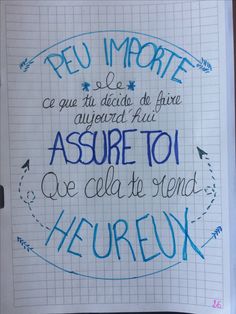 PEU IMPORTE
ce que tu décide de faire
aujourd'hui
ASSURE TOI
Que cela te rend
HEUREUX